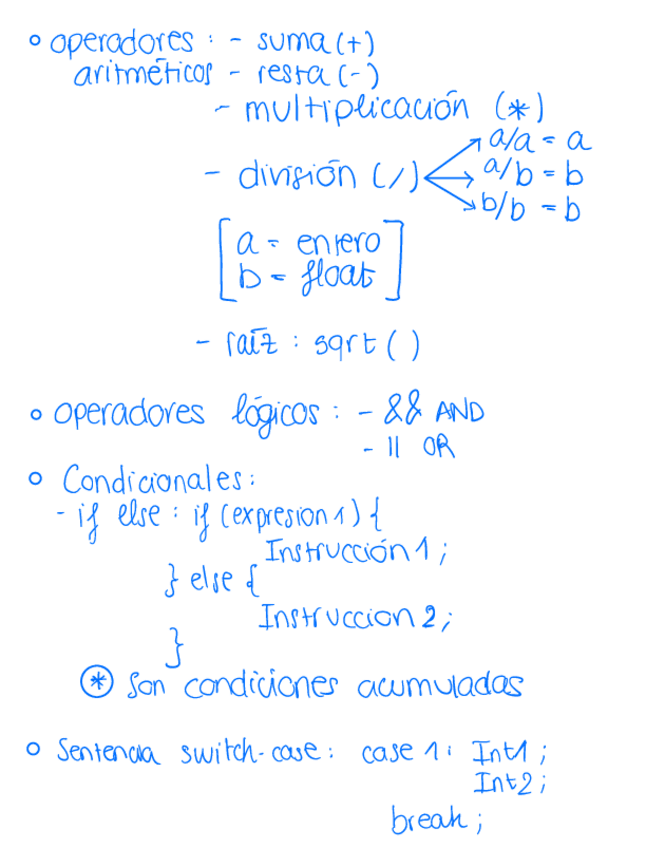 ° operadores : - suma (+)
aritméticos - resta (-)
- multiplicación (*)
a/a = a
- división (/) a/b = b
b/b = b
[ a = entero
b = float ]
- raíz : sqrt ( )
° operadores lógicos : - && AND
- || OR
° Condicionales:
- if else : if (expresion1) {
Instrucción 1 ;
} else {
Instruccion 2 ;
}
* Son condiciones acumuladas
° Sentencia switch-case : case 1: Int1 ;
Int2 ;
break ;